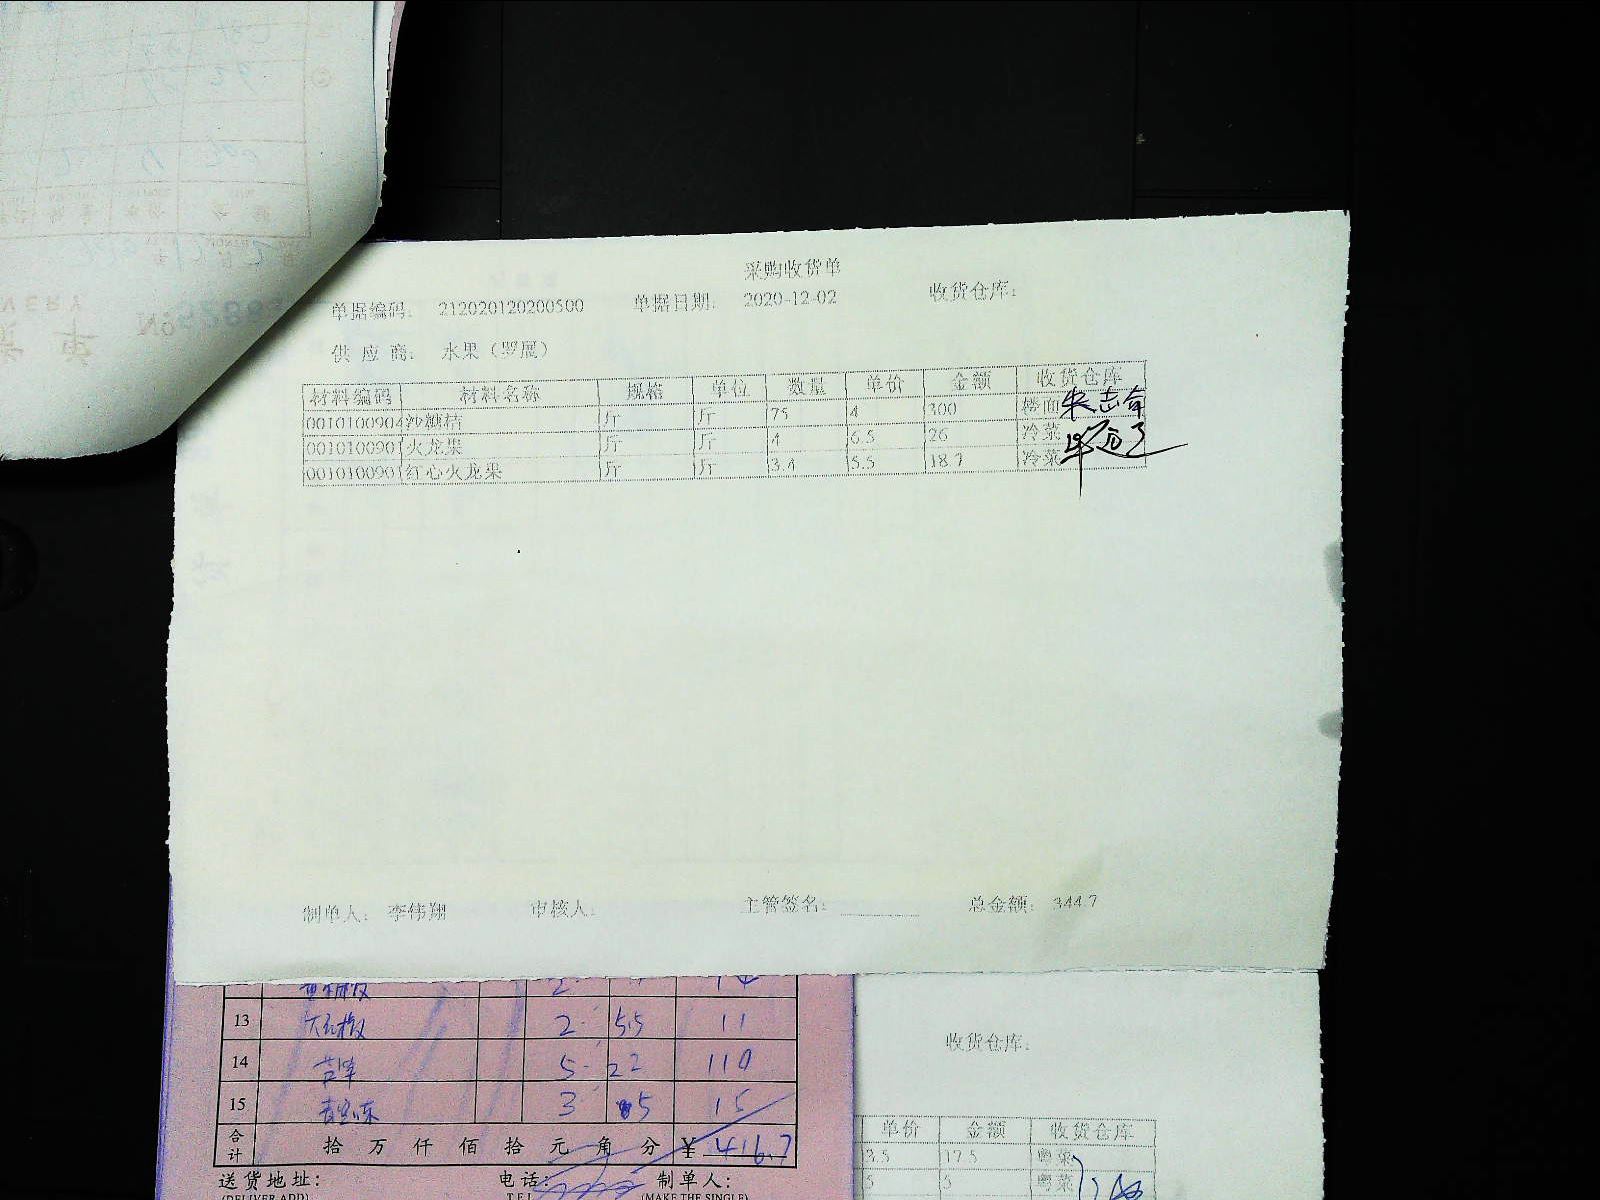 采购收货单
单据编码: 212020120200500 单据日期: 2020-12-02 收货仓库:
供应商: 水果（罗展）
材料编码 材料名称 规格 单位 数量 单价 金额 收货仓库
0010100904 沙糖桔 斤 斤 75 4 300
001010090 火龙果 斤 斤 4 6.5 26 冷菜
001010090 红心火龙果 斤 斤 3.4 5.5 18.7 冷菜
制单人: 李伟翔 审核人: 主管签名: 总金额: 344.7
13 2 5.5 11
14 5 22 110
15 3 5 15
合计 拾 万 仟 佰 拾 元 角 分 ¥ 416.7
送货地址: 电话: 制单人:
(DELIVER ADD) TEL (MAKE THE SINGLE)
收货仓库:
单价 金额 收货仓库
3.5 17.5 粤菜
5 5 粤菜